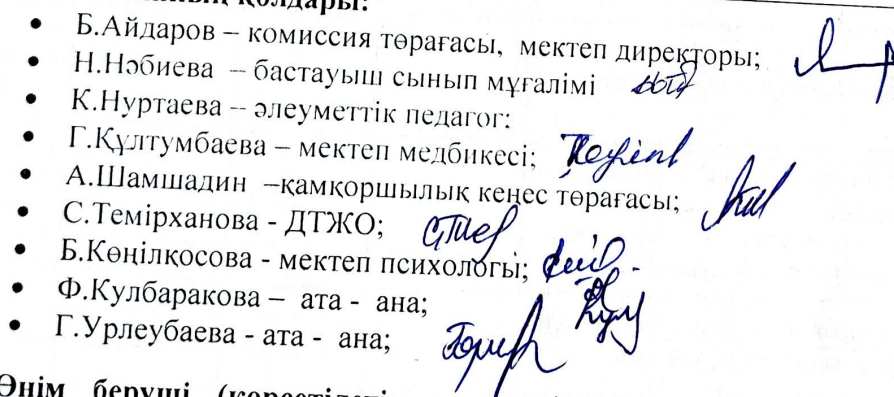 қолдары:
• Б.Айдаров – комиссия төрағасы, мектеп директоры;
• Н.Нәбиева – бастауыш сынып мұғалімі
• К.Нуртаева – әлеуметтік педагог:
• Г.Құлтумбаева – мектеп медбикесі;
• А.Шамшадин –қамқоршылық кеңес төрағасы;
• С.Темірханова - ДТЖО;
• Б.Көңілқосова - мектеп психологы;
• Ф.Кулбаракова – ата - ана;
• Г.Урлеубаева - ата - ана;
Өнім беруші